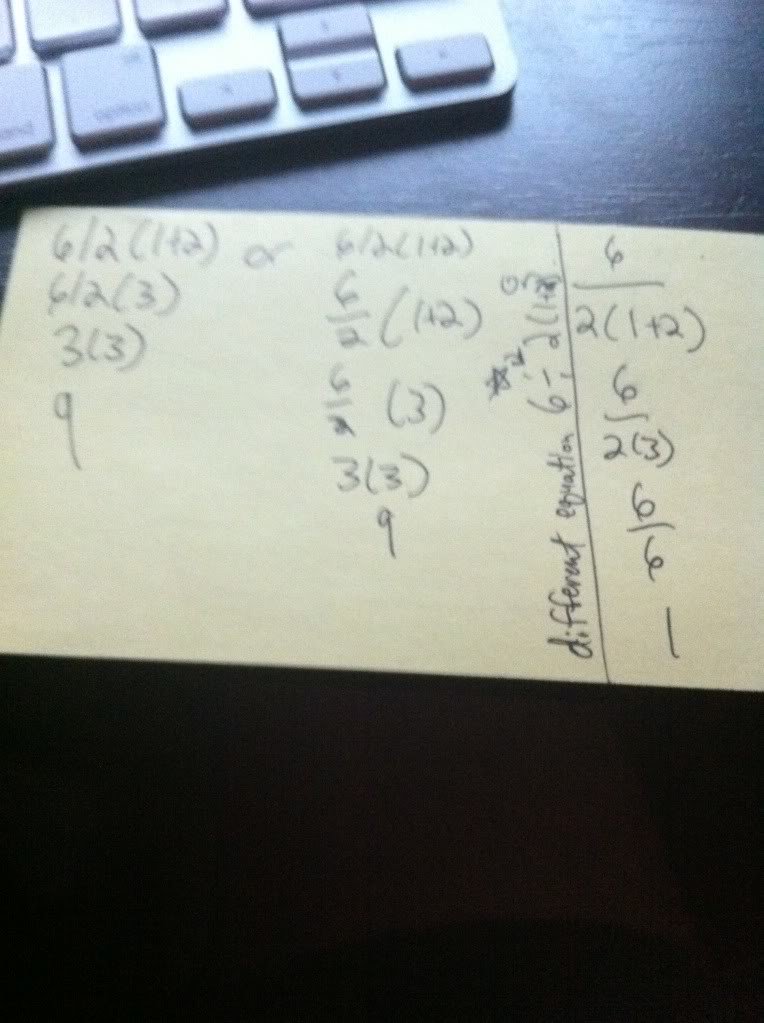 option
6/2(1+2) or
6/2(3)
3(3)
9
6/2(1+2)
6/2 (1+2)
6/2 (3)
3(3)
9
or
different equation 6÷2(1+2)
6
2(1+2)
6
2(3)
6/6
1